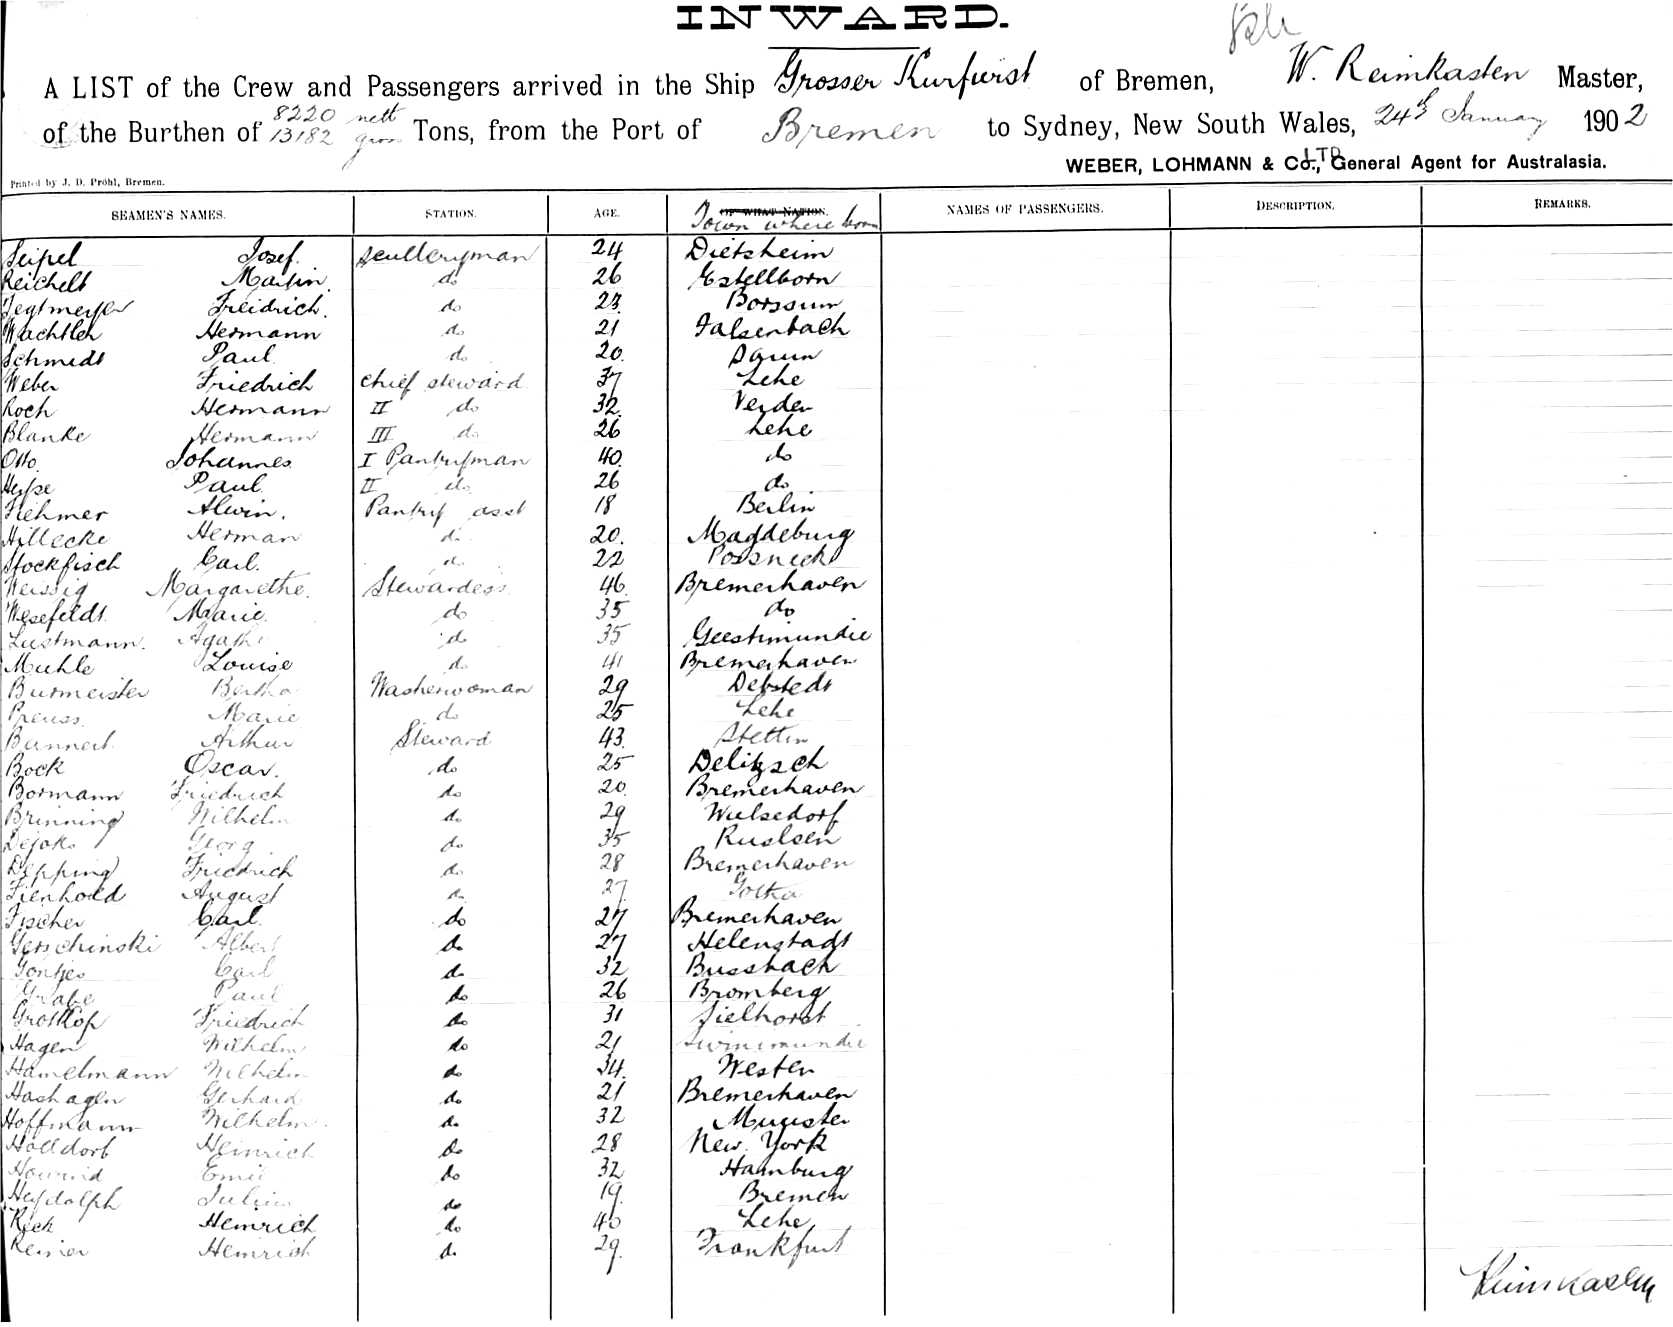 INWARD.
A LIST of the Crew and Passengers arrived in the Ship Grosser Kurfürst of Bremen, W. Reimkasten Master,
of the Burthen of 8220 nett 13182 gross Tons, from the Port of Bremen to Sydney, New South Wales, 24th January 1902
WEBER, LOHMANN & Co., LTD General Agent for Australasia.
Printed by J. D. Pröhl, Bremen.
SEAMEN'S NAMES. STATION. AGE. OF WHAT NATION. Town where born NAMES OF PASSENGERS. DESCRIPTION. REMARKS.
Seipel Josef. Sculleryman 24 Dietsheim
Reichelt Martin. do 26 Estellborn
Tegtmeyer Freidrich. do 23. Borssum
Wachtler Hermann do 21 Falsenbach
Schmidt Paul do 20.
Weber Friedrich chief steward 37 Lehe
Koch Hermann II do 32. Verden
Blanke Hermann III do 26 Lehe
Otto. Johannes. I Pantryman 40. do
Heyse Paul. II do. 26 do
Fiehmer Alwin. Pantry asst 18 Berlin
Hillecke Herman do 20. Magdeburg
Stockfisch Carl. do 22 Possneck
Weissig Margarethe. Stewardess. 46. Bremerhaven
Wesefeldt. Marie. do 35 do
Lustmann. Agathe do 35 Geestimundie
Muhle Louise do 41 Bremerhaven
Burmeister Bertha Washerwoman 29 Debstedt
Preuss. Marie do 25 Lehe
Bannert. Arthur Steward 43. Stettin
Bock Oscar. do 25 Delitzsch
Bormann Friedrich do 20. Bremerhaven
Brinning Wilhelm do 29 Wulsedorf
Georg do 35
Depping Friedrich do 28 Bremerhaven
Fienhold August do 27 Gotha
Fischer Carl. do 27 Bremerhaven
Gerschinski Albert do 27 Helenstadt
Gontjes Carl do 32 Bussbach
Grabe Paul do 26 Bromberg
Grotkop Friedrich do 31 Sielhorst
Hagen Wilhelm do 21 Swinimundie
Hamelmann Wilhelm do 34. Wester
Hashagen Gerhard do 21 Bremerhaven
Hoffmann Wilhelm. do 32 Munster
Holldorf Heinrich do 28 New. York
Emil do 32 Hamburg
Heydolph Julius do 19. Bremen
Reck Heinrich do 40 Lehe
Reiner Heinrich do 29. Frankfurt
Reimkasten